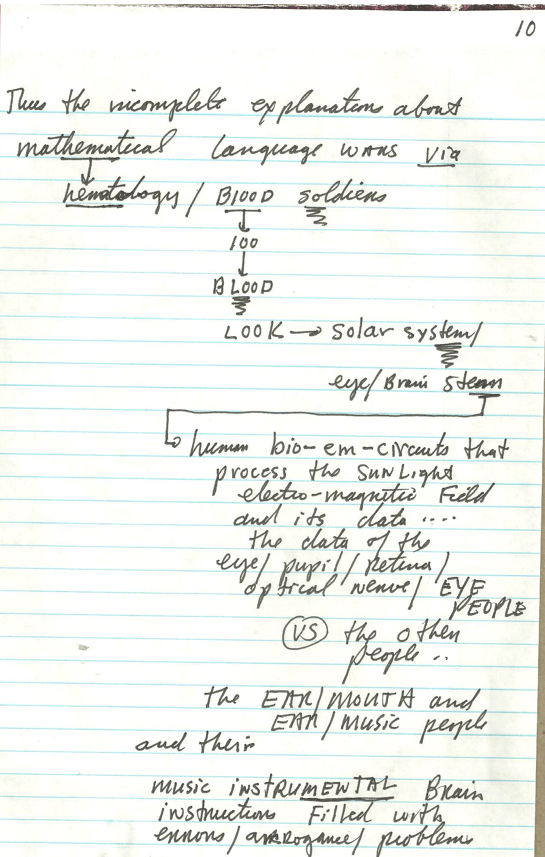 10
Thus the incomplete explanations about
mathematical language wars via
hematology / B100D soldiers
100
BLOOD
LOOK → solar system/
eye/Brain stem
human bio-em-circuits that
process the SUNLight
electro-magnetic Field
and its data ....
the data of the
eye/ pupil / retina /
optical nerve / EYE
PEOPLE
VS the other
people ..
the EAR/MOUTH and
EAR/MUSIC people
and their
music instRUMENTAL Brain
instructions Filled with
errors / arrogance / problems